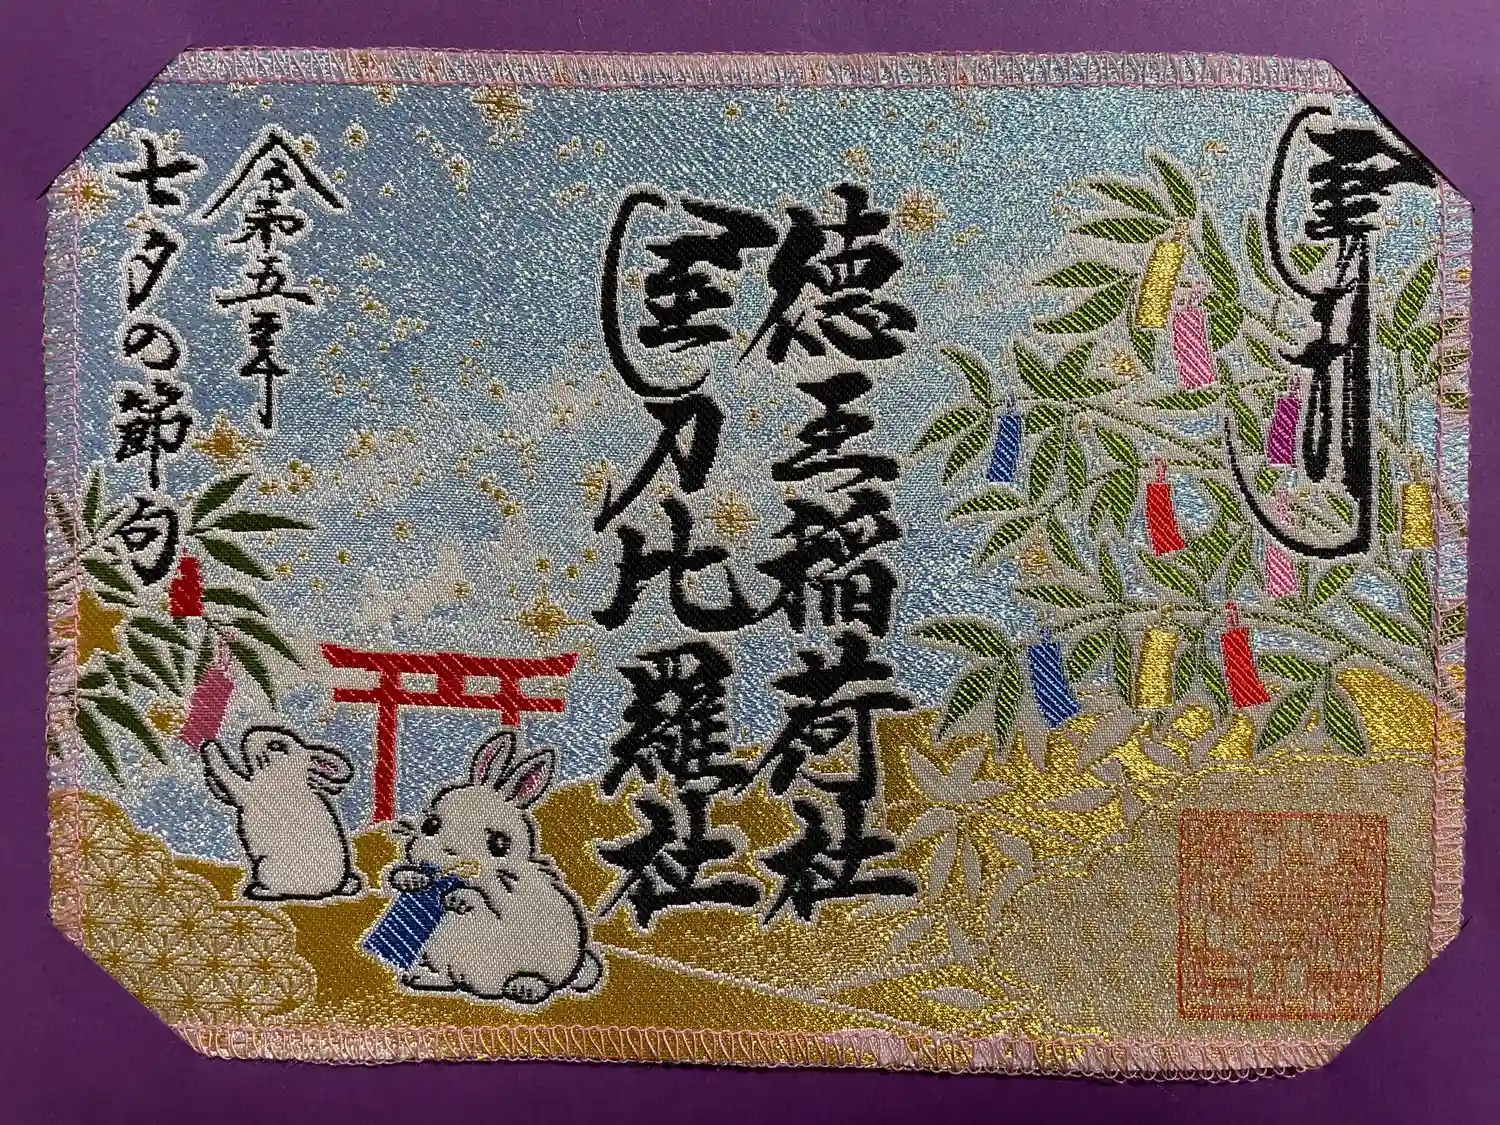 徳王稲荷社
金刀比羅社
令和五年
七夕の節句